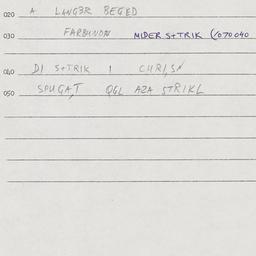 020 A LANGER BEGED
030 FARBUNDN MIDER STRIK (/070040
040 DI STRIK I
050 SPUGAT OGL AZA STRIKL